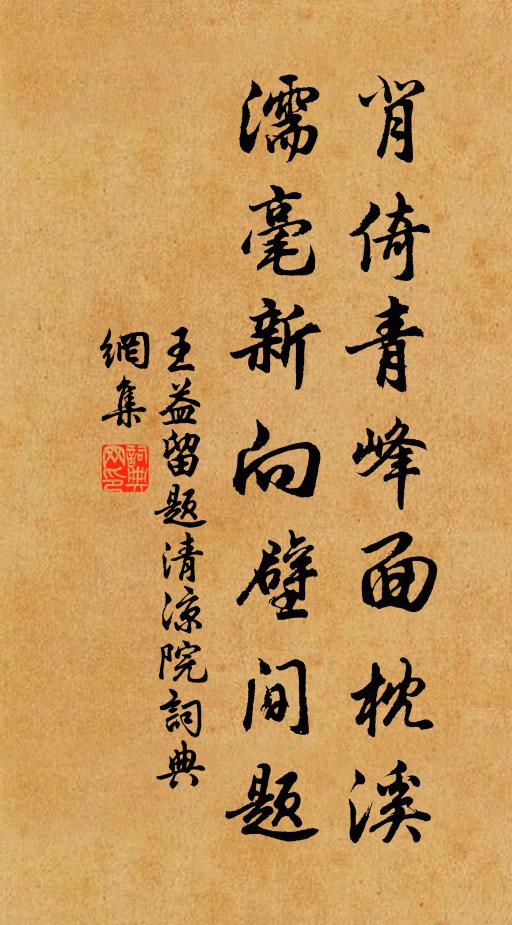 背倚青峰面枕溪
濡毫新向壁间题
王益留题清凉院詞典
網集
詞典網印